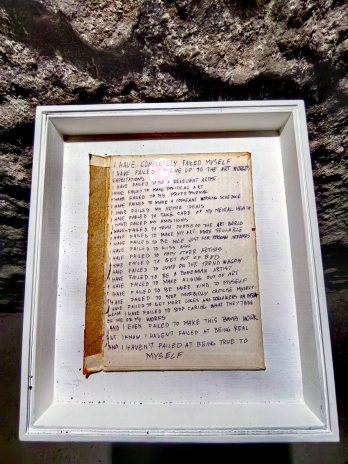 I HAVE COMPLETELY FAILED MYSELF
I HAVE FAILED TO LIVE UP TO THE ART WORLDS
EXPECTATIONS
I HAVE FAILED TO BE A RELEVANT ARTIST
I HAVE FAILED TO MAKE POLITICAL ART
I HAVE FAILED TO BE
I HAVE FAILED TO MAKE A CONSTANT WORKING SCHEDULE
I HAVE FAILED MY ARTISTIC IDEALS
I HAVE FAILED TO TAKE CARE OF MY MENTAL HEALTH
I HAVE FAILED MY AMBITIONS
I HAVE FAILED TO THE ART WORLD
I HAVE FAILED TO MAKE MY ART MORE SELLABLE
I HAVE FAILED TO BE NICE JUST FOR
I HAVE FAILED TO KISS ASS
I HAVE FAILED TO COPY OTHER ARTISTS
I HAVE FAILED TO GET OUT OF BED
I HAVE FAILED TO JUMP ON THE TREND WAGON
I HAVE FAILED TO BE A BOHEMIAN ARTIST
I HAVE FAILED TO MAKE A LIVING OUT OF ART
I HAVE FAILED TO BE MORE KIND TO MYSELF
I HAVE FAILED TO STOP CRITICISE MYSELF
I HAVE FAILED TO GET MORE LIKES AND FOLLOWERS ON
I HAVE FAILED TO STOP CARING WHAT THEY THINK
OF ME OR MY WORKS
AND I EVEN FAILED TO MAKE THIS DAMB WORK
BUT I KNOW I HAVEN'T FAILED AT BEING REAL
AND I HAVEN'T FAILED AT BEING TRUE TO
MYSELF